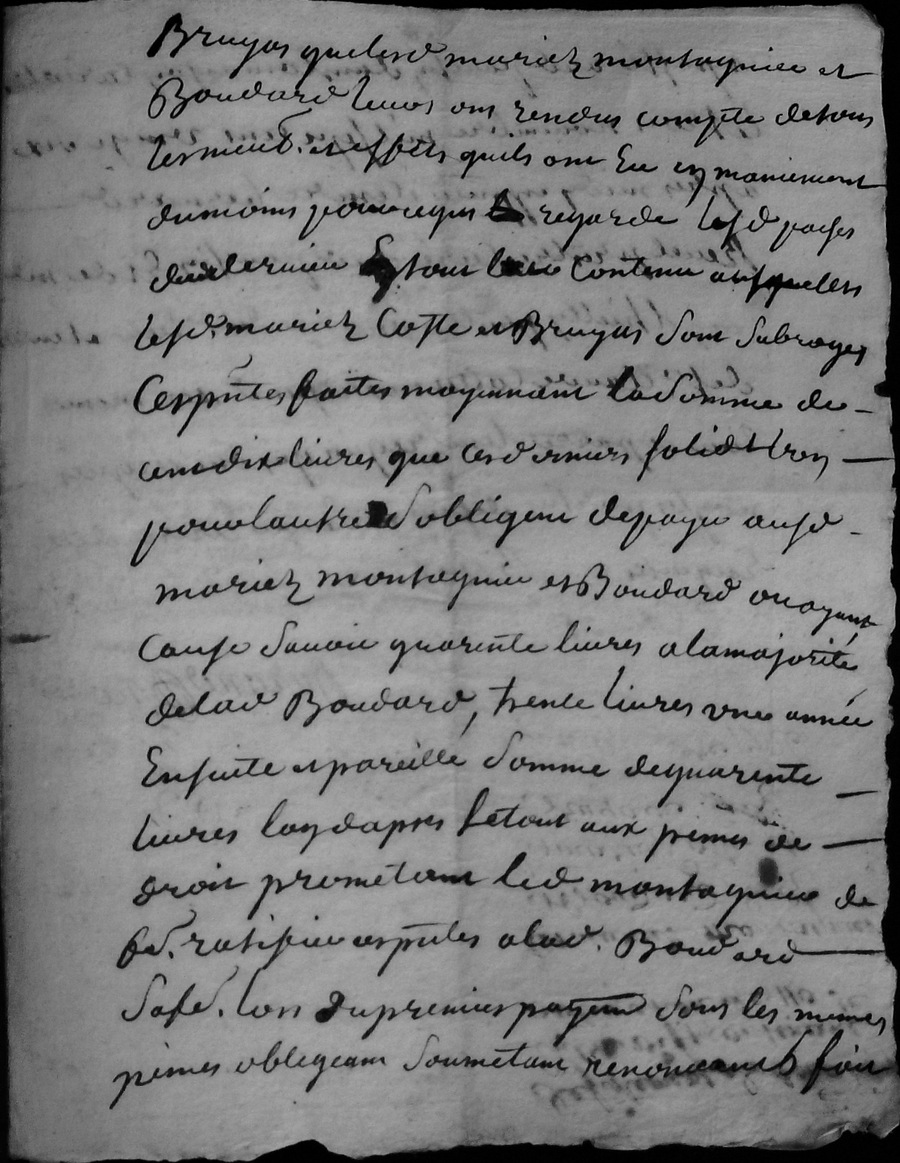 Bruyas que lesd mariez montagnier et
Boudard leur ont rendus compte de tous
les meub. et effets quils ont Eu en maniement
du moins pour ce qui regarde lesd pactes
dud dernier tout leur Contenu ausquelles
lesd. mariez Coste et Bruyas Sont Subroges
Ces pntes faites moyennant la Somme de
cent dix livres que ces derniers solidt lun
pour lautre Sobligent de payer ausd
mariez montagnier et Boudard ou ayant
Cause Savoir quarente livres a la majorité
de lad Boudard, trente livres une année
Ensuite et pareille Somme de quarente
livres lan dapres le tout aux peines de
droit prometant led montagnier de
fe. ratifier ces pntes a lad. Boudard
Sa fe. lors du premier payent Sous les memes
peines obligeant Soumetant renonceant fait